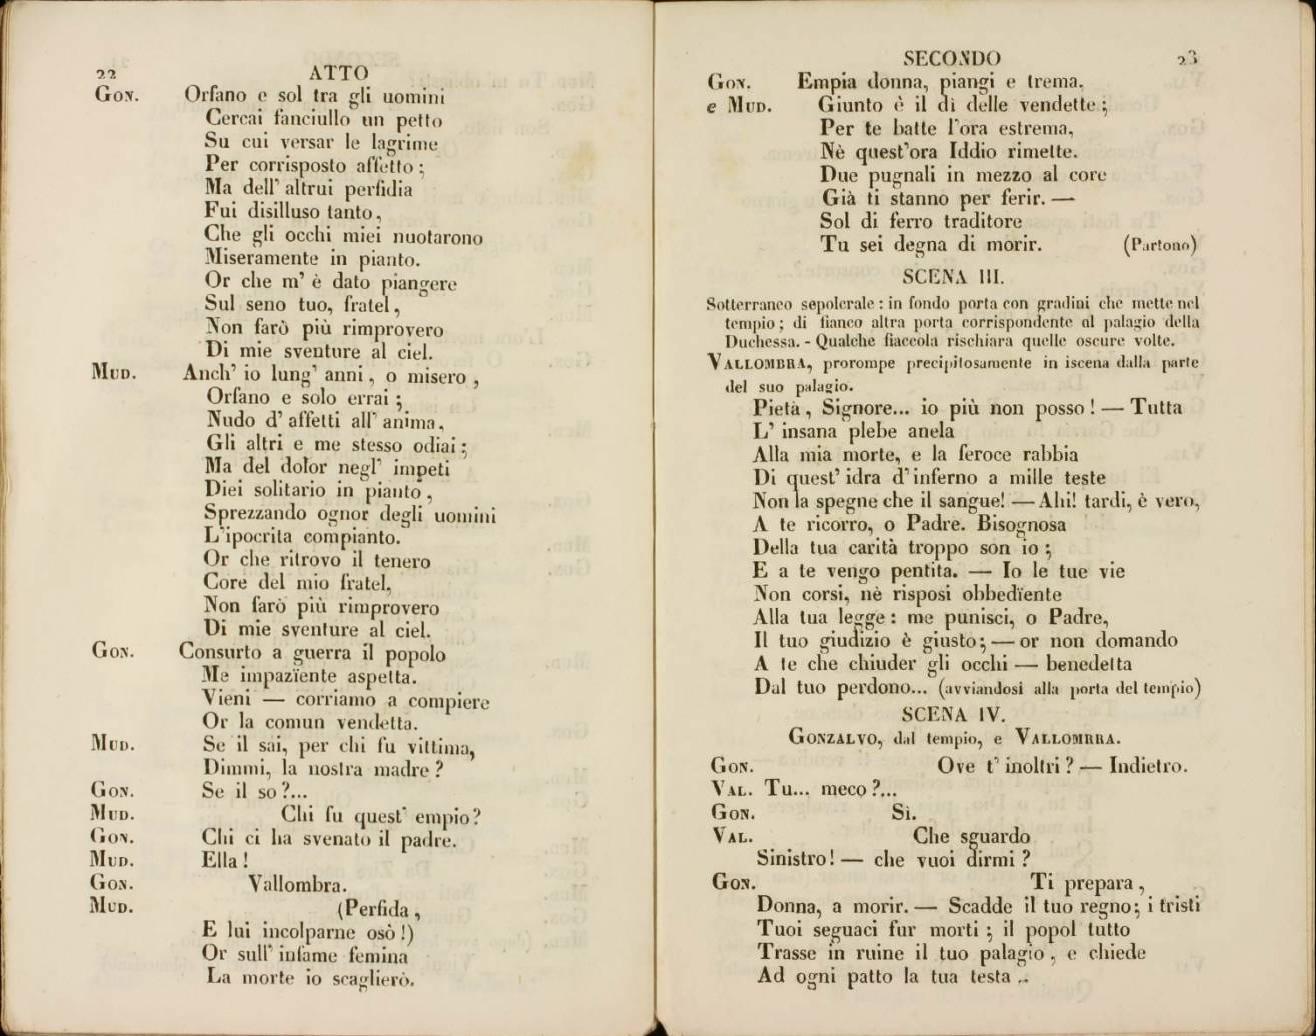 22 ATTO
GON. Orfano e sol tra gli uomini
Cercai fanciullo un petto
Su cui versar le lagrime
Per corrisposto affetto;
Ma dell' altrui perfidia
Fui disilluso tanto,
Che gli occhi miei nuotarono
Miseramente in pianto.
Or che m' è dato piangere
Sul seno tuo, fratel,
Non farò più rimprovero
Di mie sventure al ciel.
MUD. Anch' io lung' anni, o misero,
Orfano e solo errai;
Nudo d' affetti all' anima,
Gli altri e me stesso odiai;
Ma del dolor negl' impeti
Diei solitario in pianto,
Sprezzando ognor degli uomini
L'ipocrita compianto.
Or che ritrovo il tenero
Core del mio fratel,
Non farò più rimprovero
Di mie sventure al ciel.
GON. Consurto a guerra il popolo
Me impazïente aspetta.
Vieni — corriamo a compiere
Or la comun vendetta.
MUD. Se il sai, per chi fu vittima,
Dimmi, la nostra madre?
GON. Se il so?...
MUD. Chi fu quest' empio?
GON. Chi ci ha svenato il padre.
MUD. Ella!
GON. Vallombra.
MUD. (Perfida,
E lui incolparne osò!)
Or sull' infame femina
La morte io scaglierò.
SECONDO 23
GON. Empia donna, piangi e trema.
e MUD. Giunto è il dì delle vendette;
Per te batte l'ora estrema,
Nè quest'ora Iddio rimette.
Due pugnali in mezzo al core
Già ti stanno per ferir. —
Sol di ferro traditore
Tu sei degna di morir. (Partono)
SCENA III.
Sotterraneo sepolcrale: in fondo porta con gradini che mette nel
tempio; di fianco altra porta corrispondente al palagio della
Duchessa. - Qualche fiaccola rischiara quelle oscure volte.
VALLOMBRA, prorompe precipitosamente in iscena dalla parte
del suo palagio.
Pietà, Signore... io più non posso! — Tutta
L' insana plebe anela
Alla mia morte, e la feroce rabbia
Di quest' idra d' inferno a mille teste
Non la spegne che il sangue! — Ahi! tardi, è vero,
A te ricorro, o Padre. Bisognosa
Della tua carità troppo son io;
E a te vengo pentita. — Io le tue vie
Non corsi, nè risposi obbedïente
Alla tua legge: me punisci, o Padre,
Il tuo giudizio è giusto; — or non domando
A te che chiuder gli occhi — benedetta
Dal tuo perdono... (avviandosi alla porta del tempio)
SCENA IV.
GONZALVO, dal tempio, e VALLOMBRA.
GON. Ove t' inoltri? — Indietro.
VAL. Tu... meco?...
GON. Sì.
VAL. Che sguardo
Sinistro! — che vuoi dirmi?
GON. Ti prepara,
Donna, a morir. — Scadde il tuo regno; i tristi
Tuoi seguaci fur morti; il popol tutto
Trasse in ruine il tuo palagio, e chiede
Ad ogni patto la tua testa ..